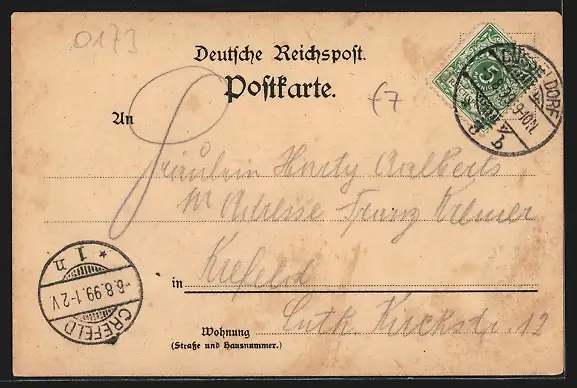 0173
Deutsche Reichspost.
Postkarte.
DÜSSELDORF
9-10N.
5
An
Fräulein Harty Aalberts
Adresse Franz Kremer
in Krefeld
Luth. Kirchstr. 12
Wohnung
(Straße und Hausnummer.)
CREFELD
6.8.99.1-2V
* 1 n